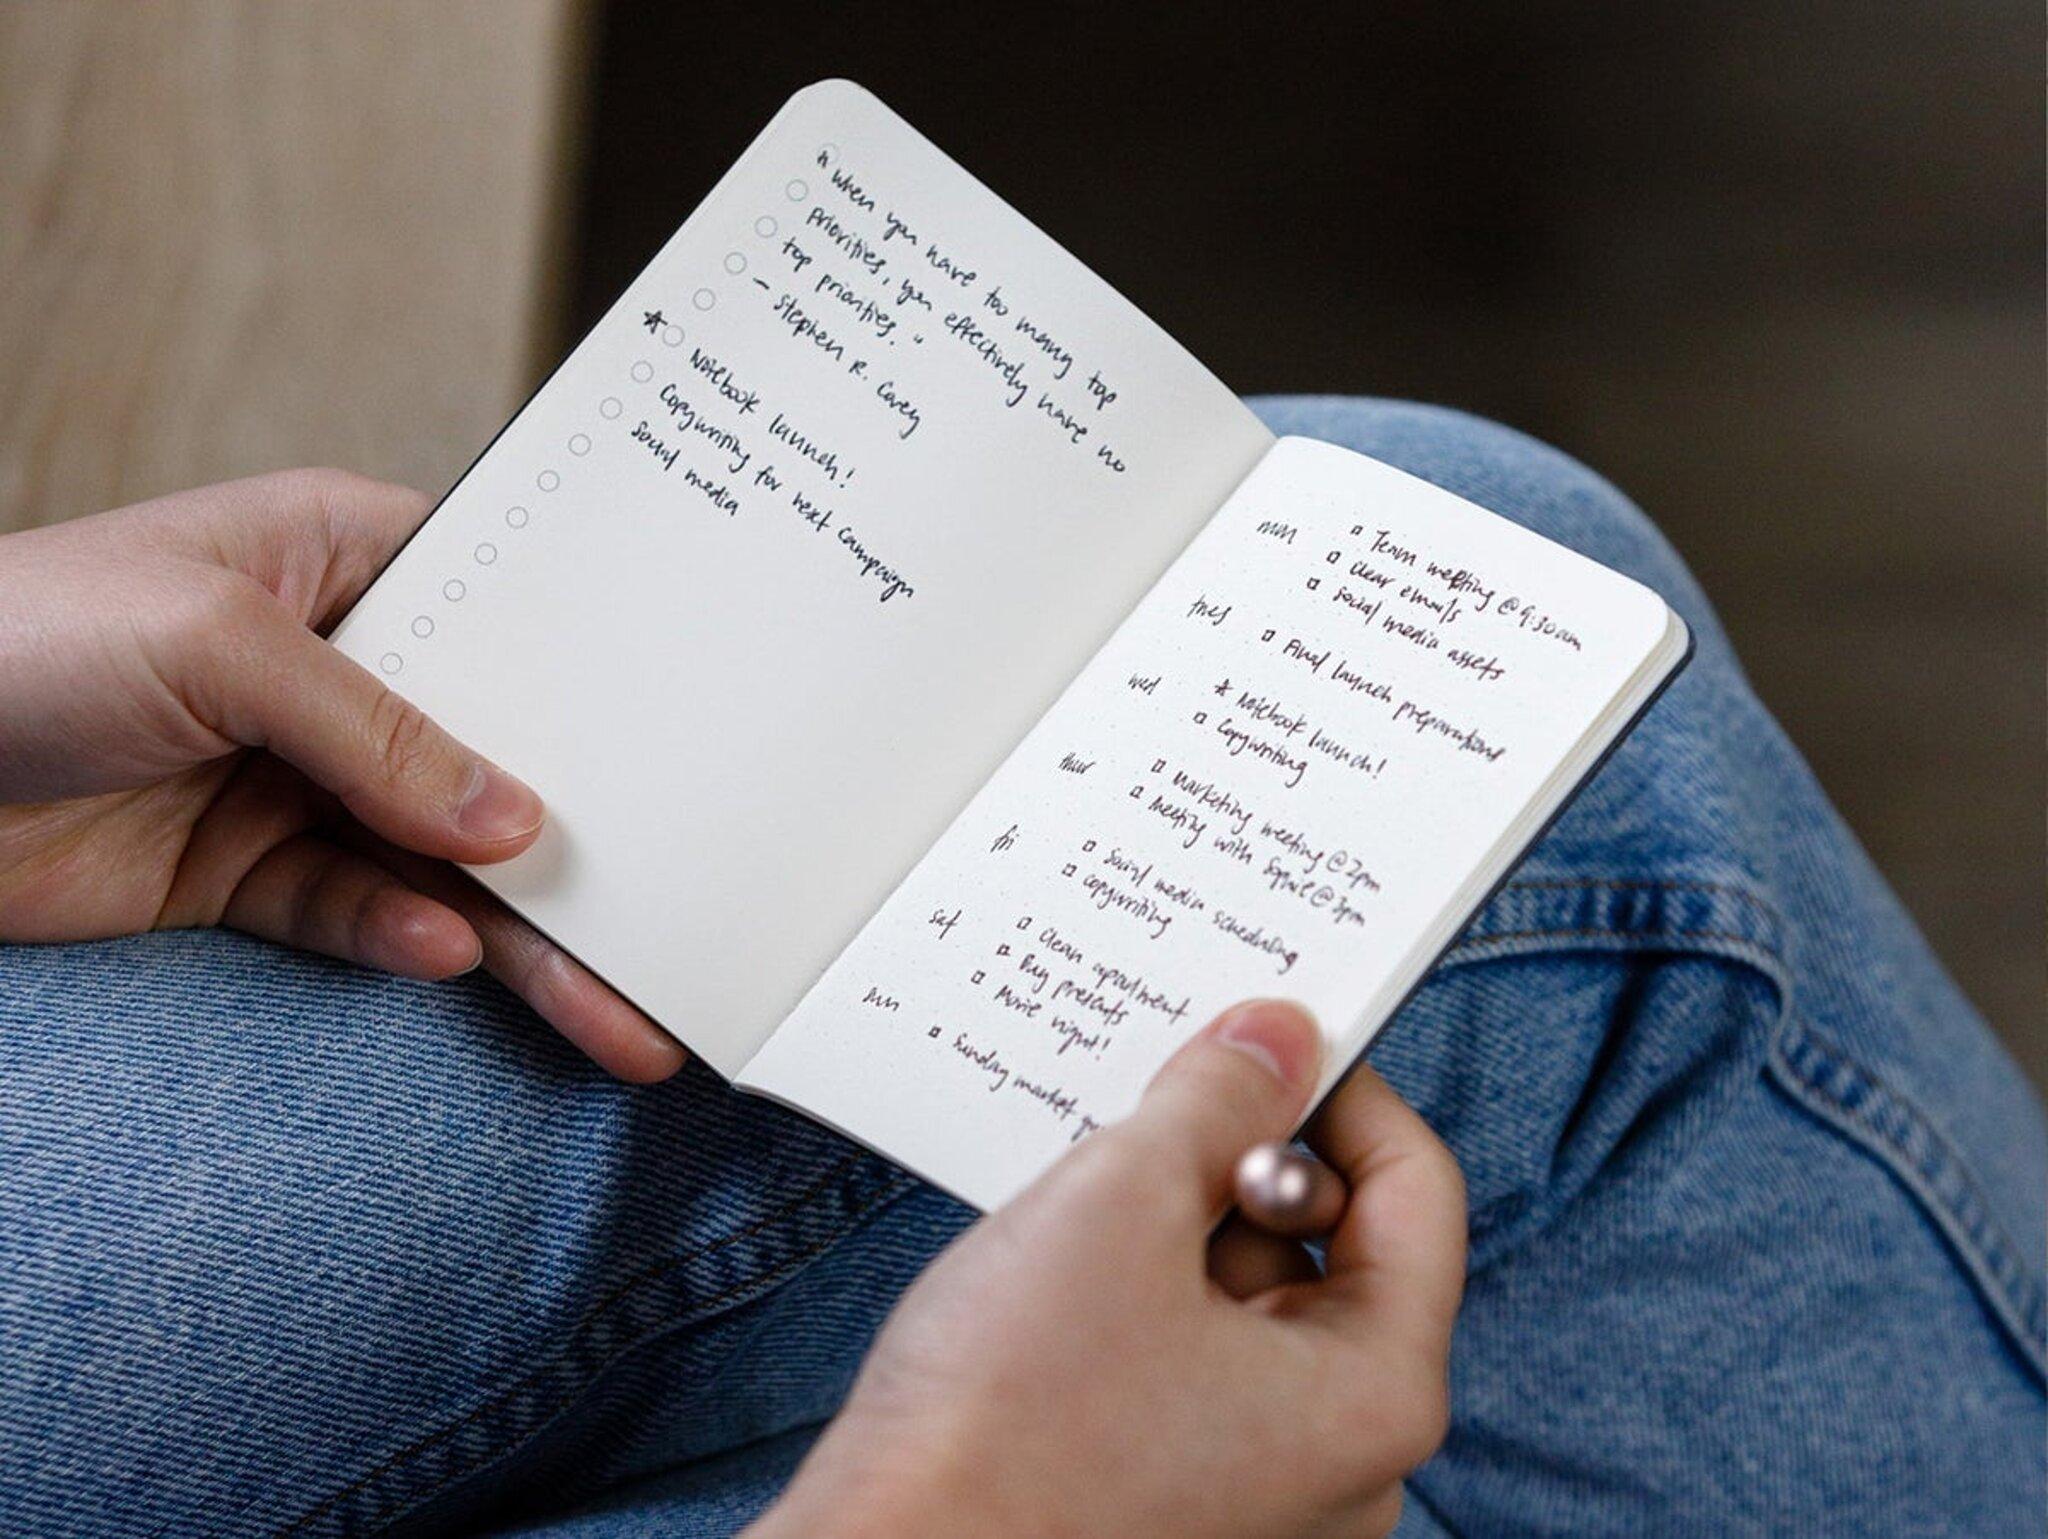 "When you have too many top
priorities, you effectively have no
top priorities."
— Stephen R. Covey
Notebook launch!
Copywriting for next campaign
social media
mon
Team meeting @ 9:30am
Clear emails
Social media assets
tues
Final launch preparations
wed
Notebook launch!
Copywriting
thur
Marketing meeting @ 2pm
Meeting with Sophie @ 3pm
fri
Social media scheduling
Copywriting
sat
Clean apartment
Buy presents
Movie night!
sun
Sunday market